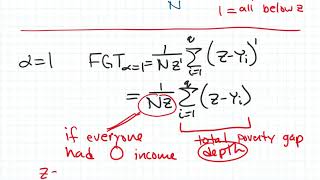 N
1 = all below z
α=1 FGT_{α=1} = \frac{1}{Nz^1} \sum_{i=1}^{q} (z-Y_i)^1
= \frac{1}{Nz} \sum_{i=1}^{q} (z-Y_i)
if everyone
had 0 income
total poverty gap
depth
z-